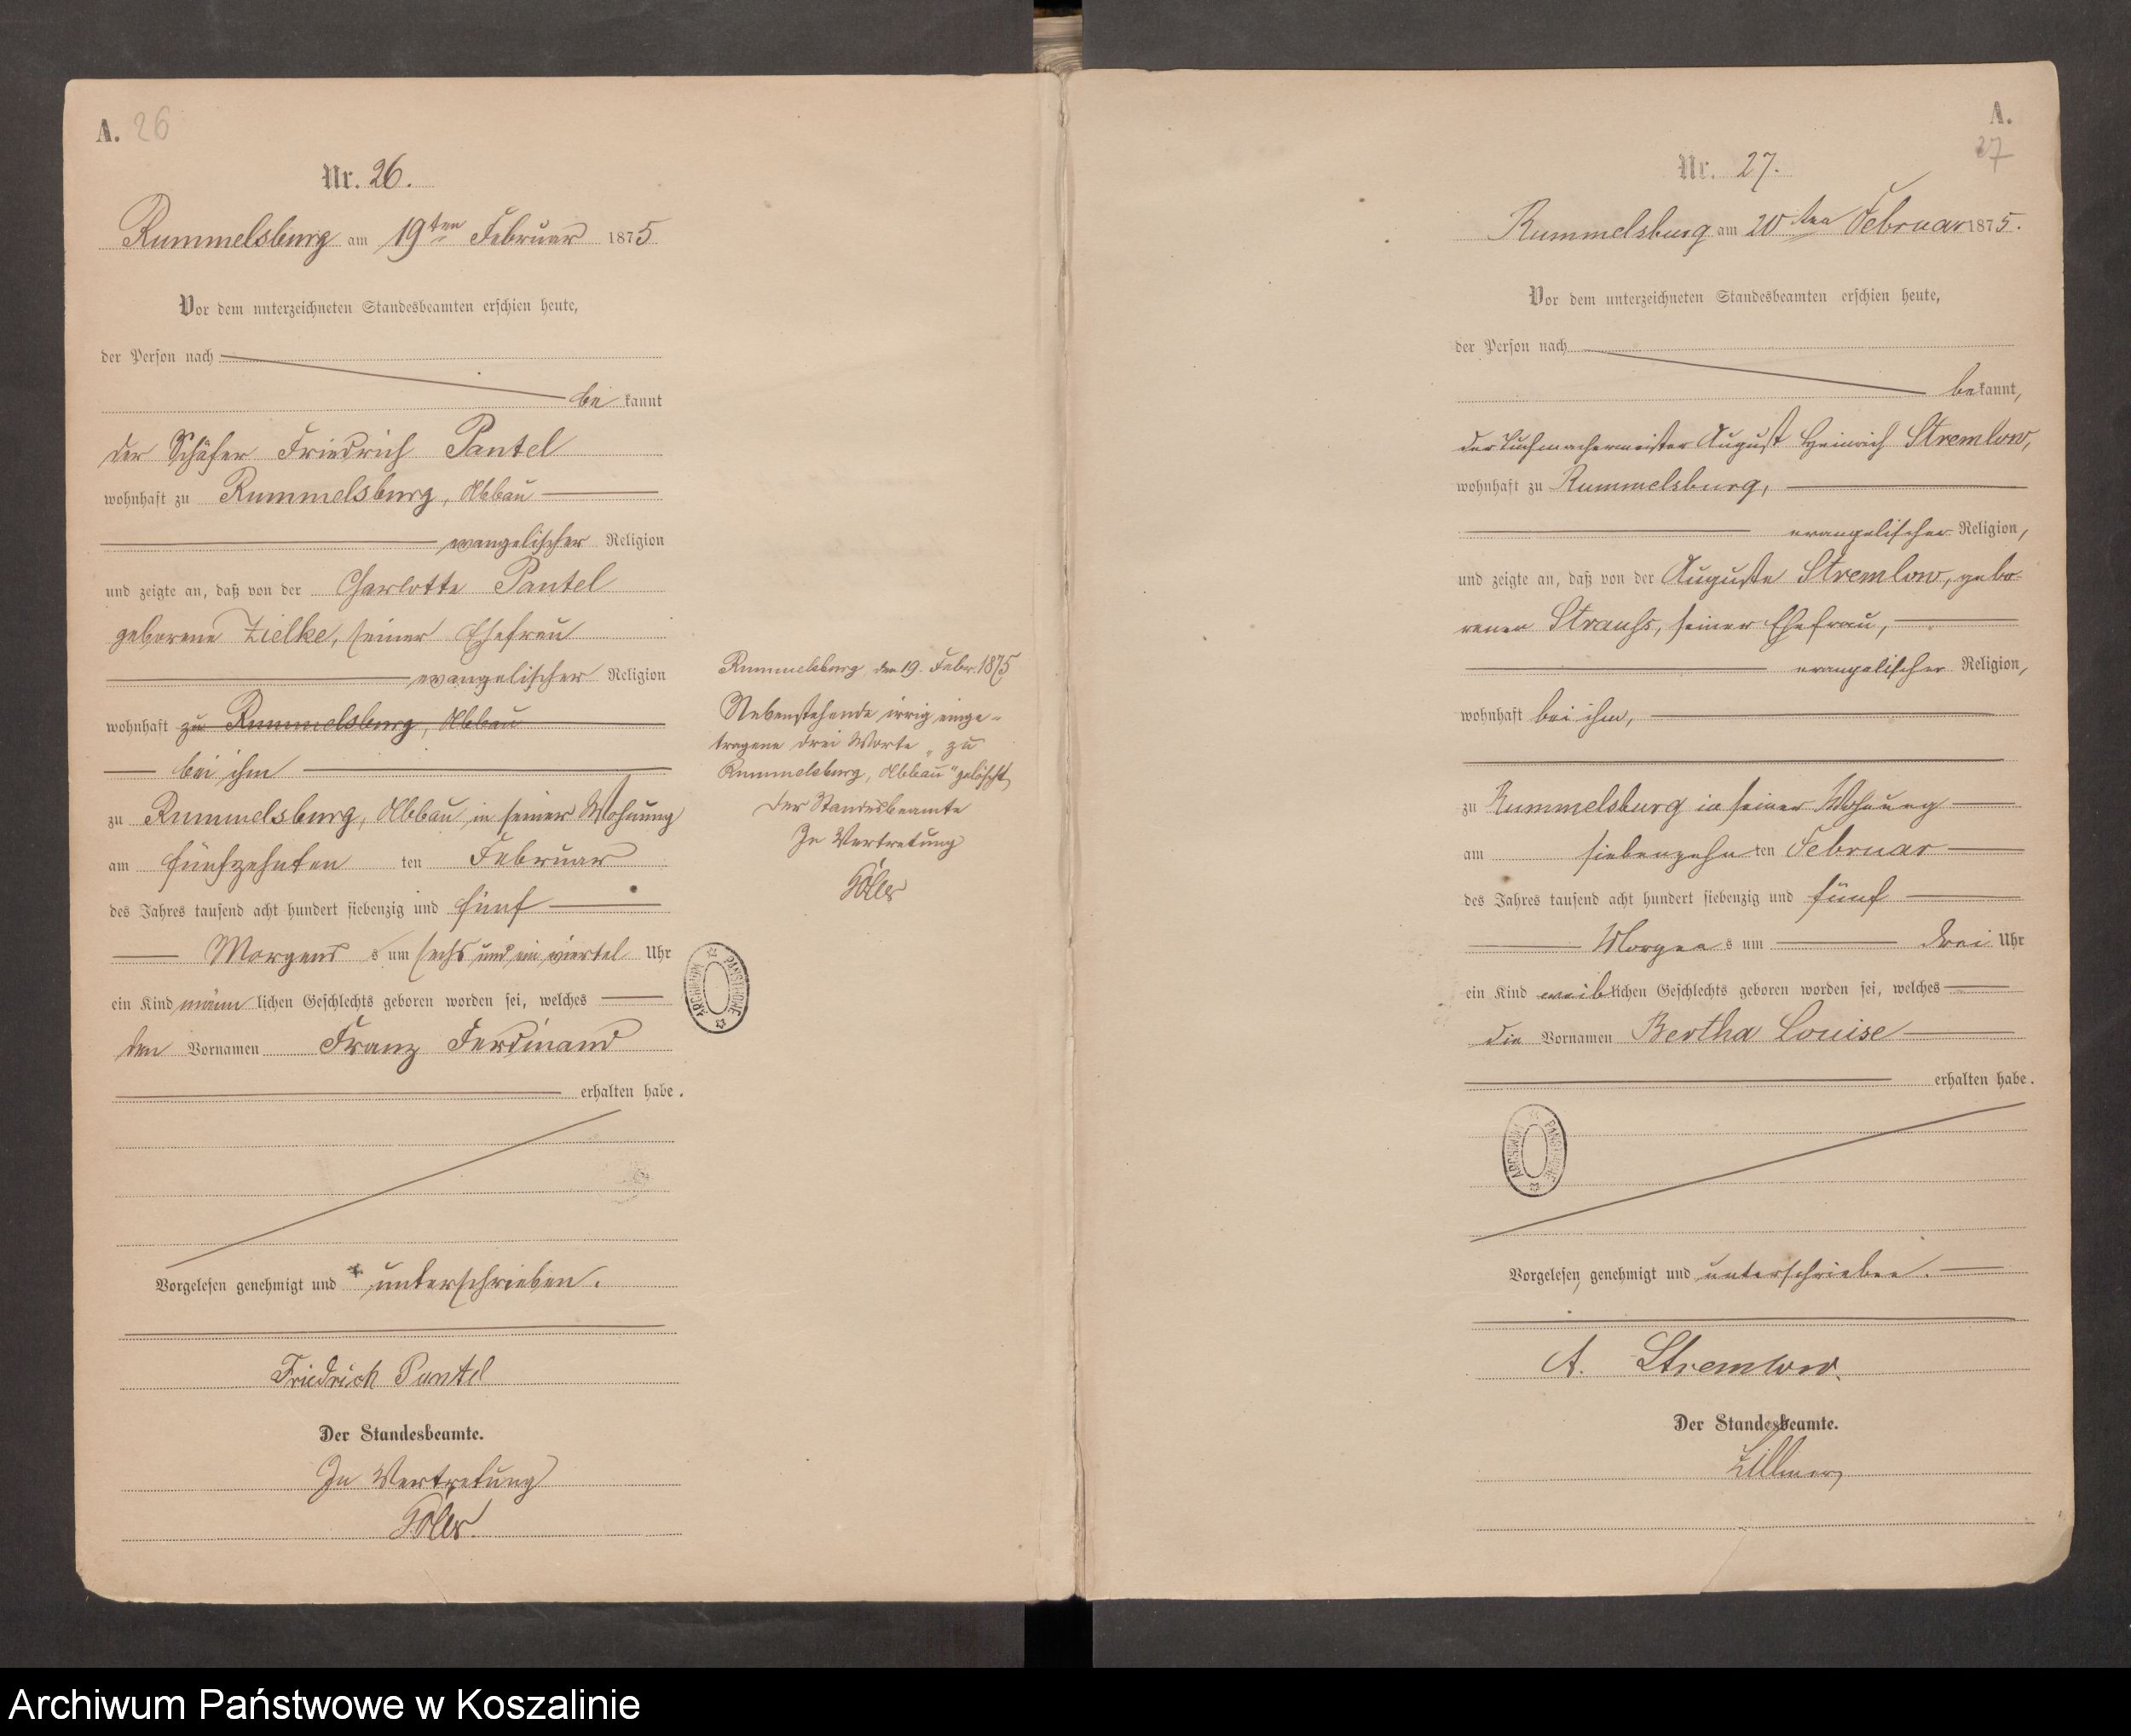 A. 26
Nr. 26.
Rummelsburg am 19ten Februar 1875
Vor dem unterzeichneten Standesbeamten erschien heute,
der Person nach
be kannt
der Schäfer Friedrich Pantel
wohnhaft zu Rummelsburg, Abbau
evangelischer Religion
und zeigte an, daß von der Charlotte Pantel
geborene Zielke, seiner Ehefrau
evangelischer Religion
wohnhaft zu Rummelsburg, Abbau
bei ihm
zu Rummelsburg, Abbau, in seiner Wohnung
am fünfzehnten ten Februar
des Jahres tausend acht hundert siebenzig und fünf
Morgens s um sechs und ein viertel Uhr
ein Kind männ lichen Geschlechts geboren worden sei, welches
den Vornamen Franz Ferdinand
erhalten habe.
Vorgelesen genehmigt und unterschrieben.
Friedrich Pantel
Der Standesbeamte.
In Vertretung
Rummelsburg den 19. Febr. 1875
Nebenstehende irrig einge-
tragene drei Worte „zu
Rummelsburg, Abbau" gelöscht
Der Standesbeamte
In Vertretung
ARCHIWUM PAŃSTWOWE
A.
27
Nr. 27.
Rummelsburg am 20ten Februar 1875.
Vor dem unterzeichneten Standesbeamten erschien heute,
der Person nach
bekannt,
der Tuchmachermeister August Heinrich Stremlow,
wohnhaft zu Rummelsburg,
evangelischer Religion,
und zeigte an, daß von der Auguste Stremlow, gebo-
rener Strauhs, seiner Ehefrau,
evangelischer Religion,
wohnhaft bei ihm,
zu Rummelsburg in seiner Wohnung
am siebenzehn ten Februar
des Jahres tausend acht hundert siebenzig und fünf
Morgen s um drei Uhr
ein Kind weiblichen Geschlechts geboren worden sei, welches
die Vornamen Bertha Louise
erhalten habe.
ARCHIWUM PAŃSTWOWE
Vorgelesen, genehmigt und unterschrieben.
A. Stremlow.
Der Standesbeamte.
Archiwum Państwowe w Koszalinie